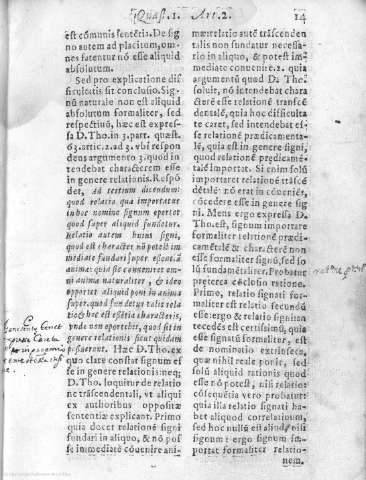 Quæst. 1. Art. 2. 14
est cõmunis sentẽtia. De sig
no autem ad placitum, om-
nes fatentur nõ esse aliquid
absolutum.
Sed pro explicatione dif
ficultatis sit conclusio. Sig-
nũ naturale non est aliquid
absolutum formaliter, sed
respectiuũ, hæc est expres-
sa D. Tho. in 3. part. quæst.
63. artic. 2. ad 3. vbi respon
dens argumento 3. quod in
tendebat characterem esse
in genere relationis. Respõ
det, ad tertium dicendum:
quod relatio quæ importatur
in hoc nomine signum oportet
quod super aliquid fundetur.
Relatio autem huius signi,
quod est character nõ potest im
mediate fundari super essentiã
animæ: quia sic conueniret om-
ni animæ naturaliter, & ideo
oportet aliquid poni in anima
super quod fundetur talis rela
tio & hoc est essẽtia characteris,
vnde non oportebit, quod sit in
genere relationis sicut quidam
posuerunt. Hæc D. Tho. ex
quo clare constat signum es
se in genere relationis: neq;
D. Tho. loquitur de relatio
ne trãscendentali, vt aliqui
ex authoribus oppositæ
sententiæ explicant. Primo
quia docet relationẽ signi
fundari in aliquo, & nõ pos
se immediatè cõuenire ani-
mæ: relatio autẽ trãscenden
talis non fundatur necessa-
rio in aliquo, & potest im-
mediate conuenire. 2. quia
argumentũ quod D. Tho.
soluit, nõ intendebat chara
cterẽ esse relationẽ transcẽ
dẽtalẽ, quia hoc difficulta
te caret, sed intendebat es-
se relationẽ prædicamenta-
lẽ, quia est in genere signi,
quod relationẽ prędicamẽ-
talẽ importat. Si enim solũ
importaret relationẽ trãscẽ
dẽtalẽ: nõ erat incõueniẽs,
cõcedere esse in genere sig
ni. Mens ergo expressa D.
Tho. est, signum importare
formaliter relationẽ prædi-
camẽtalẽ & characterẽ non
esse formaliter signũ, sed so
lũ fundamẽtaliter. Probatur
præterea cõclusio ratione.
Primo, relatio signati for-
maliter est relatio secundũ
esse: ergo & relatio signi tan
tecedẽs est certissimũ, quia
esse signatũ formaliter, est
de nominatio extrinseca,
quæ nihil reale ponit, sed
solũ aliquid rationis quod
esse nõ potest, nisi relatio:
cõsequẽtia vero probatur:
quia illa relatio signati ha-
bet aliquod correlatiuum,
sed hoc nullũ est aliud, nisi
signum: ergo signum im-
portat formaliter relatio-
nem.